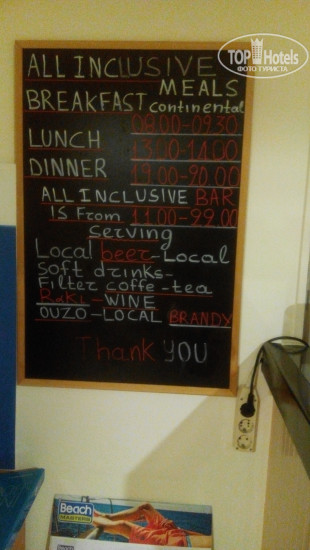 TOP Hotels
ФОТО ТУРИСТА
ALL INCLUSIVE
MEALS
BREAKFAST continental
08.00-09.30
LUNCH 13.00-14.00
DINNER 19.00-20.00
ALL INCLUSIVE BAR
IS From 11.00-22.00
serving
Local beer-Local
Soft drinks-
Filter coffe-tea
Raki-WINE
OUZO-LOCAL BRANDY
Thank YOU
Beach
MASTERS
Beach